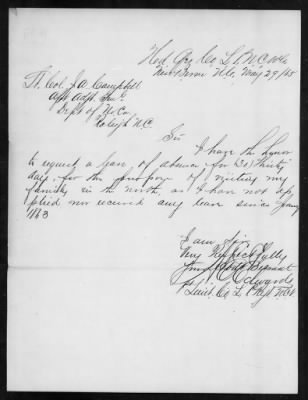 Hd Qrs Co L 1st N.C.
New Berne N.C. May 29/65
Lt. Col. J. A. Campbell
Asst Adjt. Genl.
Dept of No. Ca
Raleigh N.C.
Sir
I have the honor
to request a leave of absence for (30) Thirty
days for the purpose of visiting my
family in the north, as I have not ap
plied nor received any leave since
1863
I am Sir,
Very Respectfully
Your Obdt Servant
Edwards
1st Lieut. Co L 1 Regt